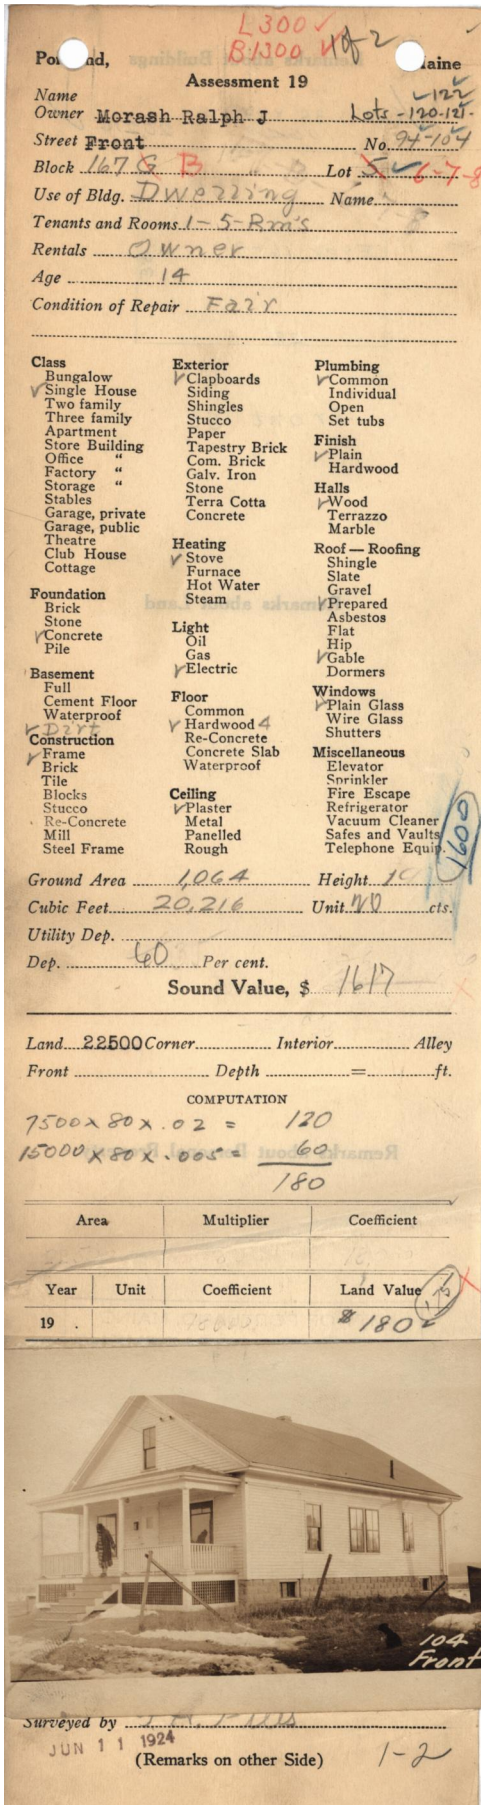 L300 ✓
B1300 ✓ 1 of 2
Po   nd,   aine
Assessment 19
Name ✓-122
Owner Morash Ralph J Lots-120-121-
Street Front No. 94-104
Block 167 G B Lot 5 ✓ 6-7-8
Use of Bldg. Dwelling Name
Tenants and Rooms 1-5-Rm's
Rentals Owner
Age 14
Condition of Repair Fair
Class
Bungalow
✓ Single House
Two family
Three family
Apartment
Store Building
Office "
Factory "
Storage "
Stables
Garage, private
Garage, public
Theatre
Club House
Cottage
Foundation
Brick
Stone
✓ Concrete
Pile
Basement
Full
Cement Floor
Waterproof
✓ Dirt
Construction
✓ Frame
Brick
Tile
Blocks
Stucco
Re-Concrete
Mill
Steel Frame
Exterior
✓ Clapboards
Siding
Shingles
Stucco
Paper
Tapestry Brick
Com. Brick
Galv. Iron
Stone
Terra Cotta
Concrete
Heating
✓ Stove
Furnace
Hot Water
Steam
Light
Oil
Gas
✓ Electric
Floor
Common
✓ Hardwood 4
Re-Concrete
Concrete Slab
Waterproof
Ceiling
✓ Plaster
Metal
Panelled
Rough
Plumbing
✓ Common
Individual
Open
Set tubs
Finish
✓ Plain
Hardwood
Halls
✓ Wood
Terrazzo
Marble
Roof — Roofing
Shingle
Slate
Gravel
✓ Prepared
Asbestos
Flat
Hip
✓ Gable
Dormers
Windows
✓ Plain Glass
Wire Glass
Shutters
Miscellaneous
Elevator
Sprinkler
Fire Escape
Refrigerator
Vacuum Cleaner
Safes and Vaults
Telephone Equip.
1600
Ground Area 1,064 Height
Cubic Feet 20,216 Unit 20 cts.
Utility Dep.
Dep. 60 Per cent.
Sound Value, $ 1617
Land 22500 Corner Interior Alley
Front Depth = ft.
COMPUTATION
7500 x 80 x .02 = 120
15000 x 80 x .005 = 60
180
Area Multiplier Coefficient
Year Unit Coefficient Land Value 175
19 . $ 180
104
Front
Surveyed by
JUN 11 1924
(Remarks on other Side) 1-2